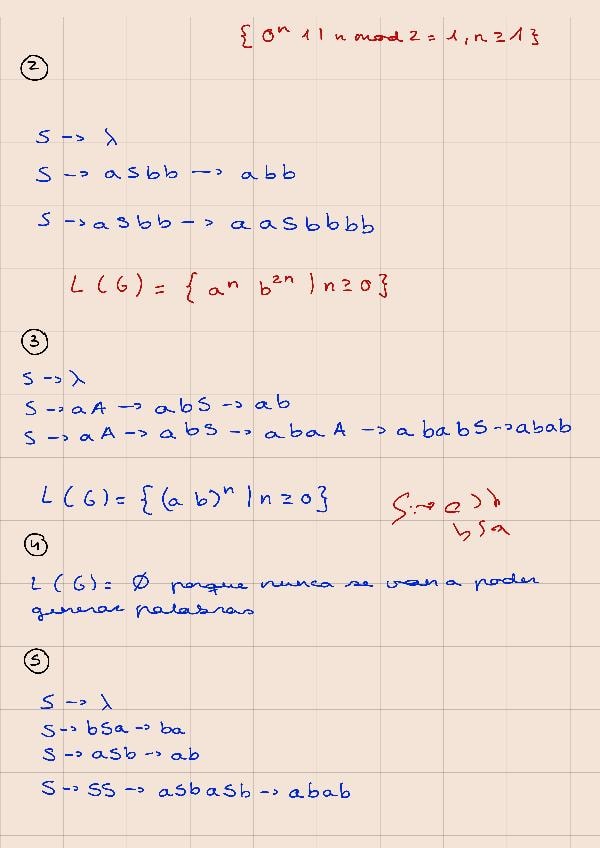 { 0ⁿ 1 | n mod 2 = 1, n ≥ 1 }
2
S -> λ
S -> aSbb -> abb
S -> aSbb -> aaSbbbb
L(G) = { aⁿ b²ⁿ | n ≥ 0 }
3
S -> λ
S -> aA -> abS -> ab
S -> aA -> abS -> abaA -> ababS -> abab
L(G) = { (ab)ⁿ | n ≥ 0 }
S
bSa
4
L(G) = Ø porque nunca se van a poder
generar palabras
5
S -> λ
S -> bSa -> ba
S -> aSb -> ab
S -> SS -> aSbaSb -> abab